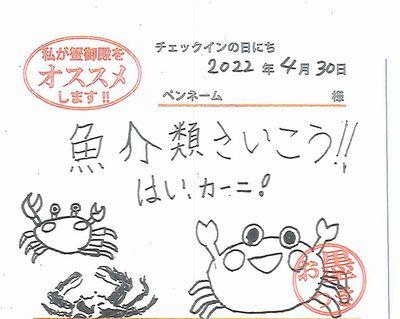 私が蟹御殿を
オススメ
します!!
チェックインの日にち
2022年4月30日
ペンネーム 様
魚介類さいこう!!
はい、カーニ!